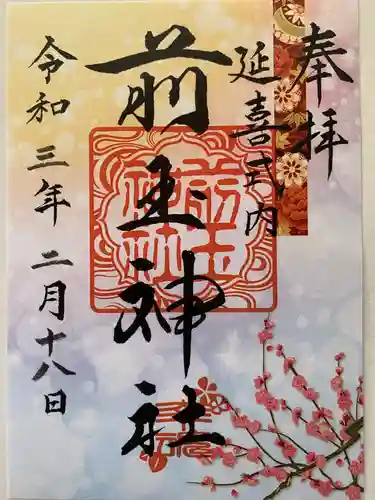 奉拝
延喜式内
前玉神社
前玉神社
令和三年二月十八日